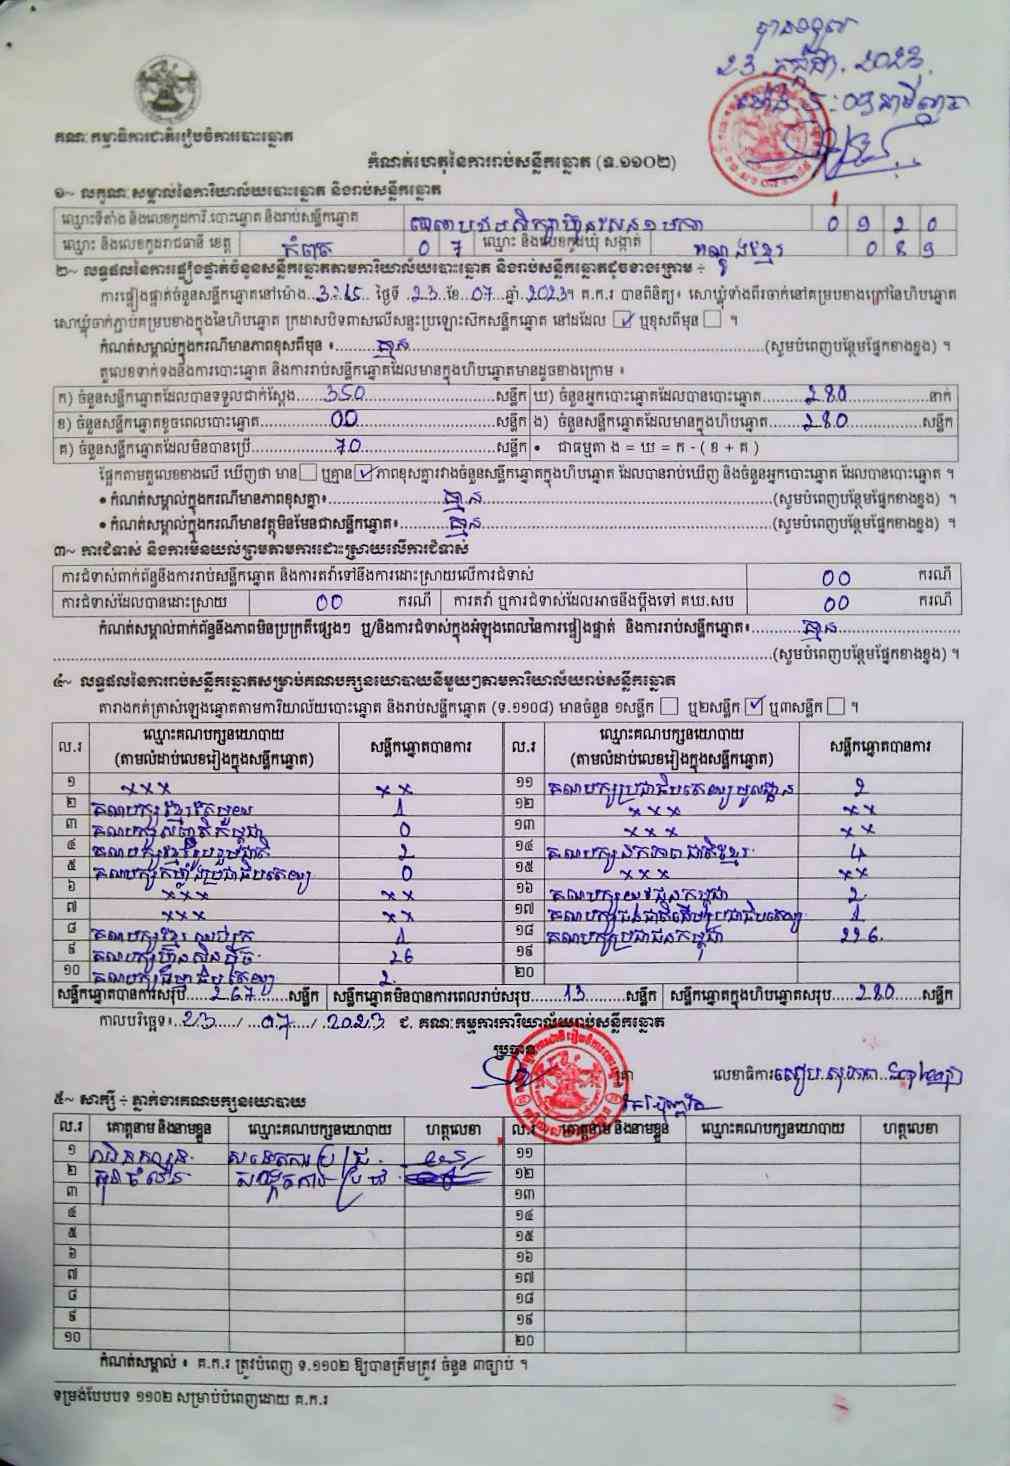 បានទទួល
23.កក្កដា.2023.
គណៈកម្មាធិការជាតិរៀបចំការបោះឆ្នោត
កំណត់ហេតុនៃការរាប់សន្លឹកឆ្នោត (ទ.១១០២)
១~ លក្ខណៈសម្គាល់នៃការិយាល័យបោះឆ្នោត និងរាប់សន្លឹកឆ្នោត
ឈ្មោះទីតាំង និងលេខកូដការិ.បោះឆ្នោត និងរាប់សន្លឹកឆ្នោត 0 9 2 0
ឈ្មោះ និងលេខកូដរាជធានី ខេត្ត កំពត 0 7 ឈ្មោះ និងលេខកូដឃុំ សង្កាត់ អណ្តូងខ្មែរ 0 8 9
២~ លទ្ធផលនៃការផ្ទៀងផ្ទាត់ចំនួនសន្លឹកឆ្នោតតាមការិយាល័យបោះឆ្នោត និងរាប់សន្លឹកឆ្នោតដូចខាងក្រោម ÷
ការផ្ទៀងផ្ទាត់ចំនួនសន្លឹកឆ្នោតនៅម៉ោង..3:15.. ថ្ងៃទី ..23..ខែ..07..ឆ្នាំ.2023។ គ.ក.រ បានពិនិត្យ៖ សោឃ្លុំទាំងពីរចាក់នៅគម្របខាងក្រៅនៃហិបឆ្នោត
សោឃ្លុំចាក់ភ្ជាប់គម្របខាងក្នុងនៃហិបឆ្នោត ក្រដាសបិទពាសលើសន្ទះប្រឡោះសឹកសន្លឹកឆ្នោត នៅដដែល ☑ ឬខុសពីមុន ☐ ។
កំណត់សម្គាល់ក្នុងករណីមានភាពខុសពីមុន ៖......គ្មាន......(សូមបំពេញបន្ថែមផ្នែកខាងខ្នង) ។
តួលេខទាក់ទងនឹងការបោះឆ្នោត និងការរាប់សន្លឹកឆ្នោតដែលមានក្នុងហិបឆ្នោតមានដូចខាងក្រោម ៖
ក) ចំនួនសន្លឹកឆ្នោតដែលបានទទួលជាក់ស្តែង....350....សន្លឹក ឃ) ចំនួនអ្នកបោះឆ្នោតដែលបានបោះឆ្នោត......280......នាក់
ខ) ចំនួនសន្លឹកឆ្នោតខូចពេលបោះឆ្នោត......00......សន្លឹក ង) ចំនួនសន្លឹកឆ្នោតដែលមានក្នុងហិបឆ្នោត......280......សន្លឹក
គ) ចំនួនសន្លឹកឆ្នោតដែលមិនបានប្រើ......70......សន្លឹក • ជាធម្មតា ង = ឃ = ក - ( ខ + គ )
ផ្អែកតាមតួលេខខាងលើ ឃើញថា មាន ☐ ឬគ្មាន ☑ ភាពខុសគ្នារវាងចំនួនសន្លឹកឆ្នោតក្នុងហិបឆ្នោត ដែលបានរាប់ឃើញ និងចំនួនអ្នកបោះឆ្នោត ដែលបានបោះឆ្នោត ។
• កំណត់សម្គាល់ក្នុងករណីមានភាពខុសគ្នា៖......គ្មាន......(សូមបំពេញបន្ថែមផ្នែកខាងខ្នង) ។
• កំណត់សម្គាល់ក្នុងករណីមានវត្ថុមិនមែនជាសន្លឹកឆ្នោត៖......គ្មាន......(សូមបំពេញបន្ថែមផ្នែកខាងខ្នង) ។
៣~ ការជំទាស់ និងការមិនយល់ព្រមតាមការដោះស្រាយលើការជំទាស់
ការជំទាស់ពាក់ព័ន្ធនឹងការរាប់សន្លឹកឆ្នោត និងការតវ៉ាទៅនឹងការដោះស្រាយលើការជំទាស់ 00 ករណី
ការជំទាស់ដែលបានដោះស្រាយ 00 ករណី ការតវ៉ា ឬការជំទាស់ដែលអាចនឹងប្តឹងទៅ គឃ.សប 00 ករណី
កំណត់សម្គាល់ពាក់ព័ន្ធនឹងភាពមិនប្រក្រតីផ្សេងៗ ឬ/និងការជំទាស់ក្នុងអំឡុងពេលនៃការផ្ទៀងផ្ទាត់ និងការរាប់សន្លឹកឆ្នោត៖......គ្មាន......
......(សូមបំពេញបន្ថែមផ្នែកខាងខ្នង) ។
៤~ លទ្ធផលនៃការរាប់សន្លឹកឆ្នោតសម្រាប់គណបក្សនយោបាយនីមួយៗតាមការិយាល័យរាប់សន្លឹកឆ្នោត
តារាងកត់ត្រាសំឡេងឆ្នោតតាមការិយាល័យបោះឆ្នោត និងរាប់សន្លឹកឆ្នោត (ទ.១១០៨) មានចំនួន ១សន្លឹក ☐ ឬ២សន្លឹក ☑ ឬ៣សន្លឹក ☐ ។
ល.រ ឈ្មោះគណបក្សនយោបាយ (តាមលំដាប់លេខរៀងក្នុងសន្លឹកឆ្នោត) សន្លឹកឆ្នោតបានការ ល.រ ឈ្មោះគណបក្សនយោបាយ (តាមលំដាប់លេខរៀងក្នុងសន្លឹកឆ្នោត) សន្លឹកឆ្នោតបានការ
១ xxx xx ១១ គណបក្សប្រជាធិបតេយ្យមូលដ្ឋាន 2
២ គណបក្សខ្មែរតែមួយ 1 ១២ xxx xx
៣ គណបក្សសញ្ជាតិកម្ពុជា 0 ១៣ xxx xx
៤ គណបក្សខ្មែររួបរួមជាតិ 2 ១៤ គណបក្សឯកភាពជាតិខ្មែរ 4
៥ គណបក្សកម្លាំងប្រជាធិបតេយ្យ 0 ១៥ xxx xx
៦ xxx xx ១៦ គណបក្សយុវជនកម្ពុជា 2
៧ xxx xx ១៧ គណបក្សជនជាតិដើមប្រជាធិបតេយ្យ 1
៨ គណបក្សខ្មែរឈប់ក្រ 1 ១៨ គណបក្សប្រជាជនកម្ពុជា 226
៩ គណបក្សហ៊្វុនស៊ិនប៉ិច 26 ១៩
១០ គណបក្សធម្មាធិបតេយ្យ 2 ២០
សន្លឹកឆ្នោតបានការសរុប....267....សន្លឹក សន្លឹកឆ្នោតមិនបានការពេលរាប់សរុប....13....សន្លឹក សន្លឹកឆ្នោតក្នុងហិបឆ្នោតសរុប....280....សន្លឹក
កាលបរិច្ឆេទ៖..23../..07../..2023 ជ. គណៈកម្មការការិយាល័យរាប់សន្លឹកឆ្នោត
ប្រធាន
លេខាធិការ
៥~ សាក្សី ÷ ភ្នាក់ងារគណបក្សនយោបាយ
ល.រ គោត្តនាម និងនាមខ្លួន ឈ្មោះគណបក្សនយោបាយ ហត្ថលេខា ល.រ គោត្តនាម និងនាមខ្លួន ឈ្មោះគណបក្សនយោបាយ ហត្ថលេខា
១ ១១
២ ១២
៣ ១៣
៤ ១៤
៥ ១៥
៦ ១៦
៧ ១៧
៨ ១៨
៩ ១៩
១០ ២០
កំណត់សម្គាល់ ៖ គ.ក.រ ត្រូវបំពេញ ទ.១១០២ ឱ្យបានត្រឹមត្រូវ ចំនួន ៣ច្បាប់ ។
ទម្រង់បែបបទ ១១០២ សម្រាប់បំពេញដោយ គ.ក.រ